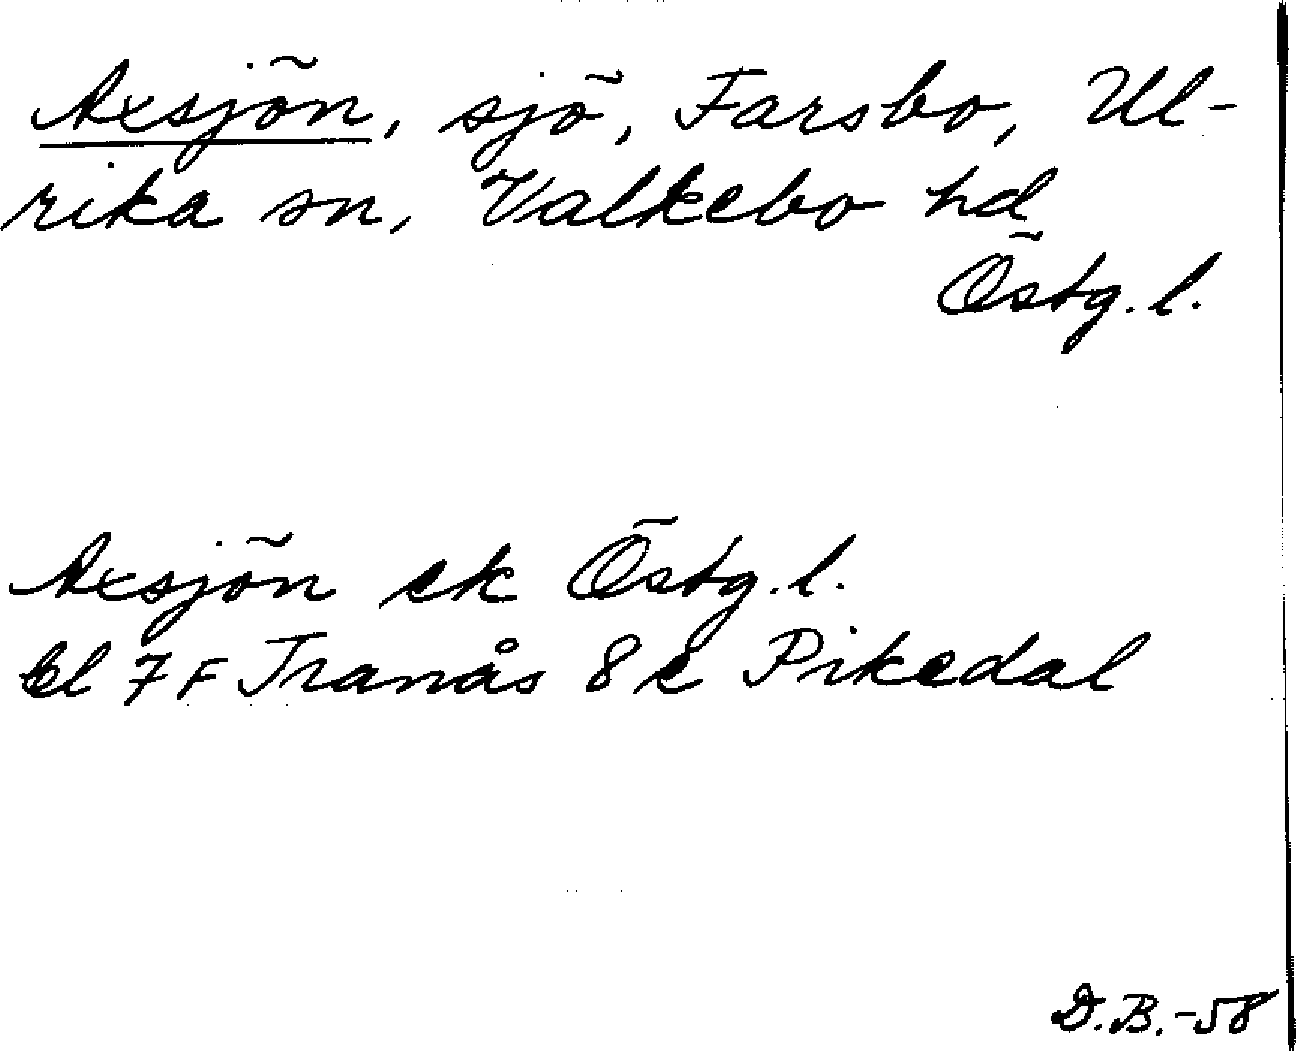 Axsjön, sjö, Farsbo, Ul-
rika sn, Valkebo hd
Östg. l.
Axsjön ek Östg. l.
bl 7F Tranås 8e Pikedal
D.B.-58